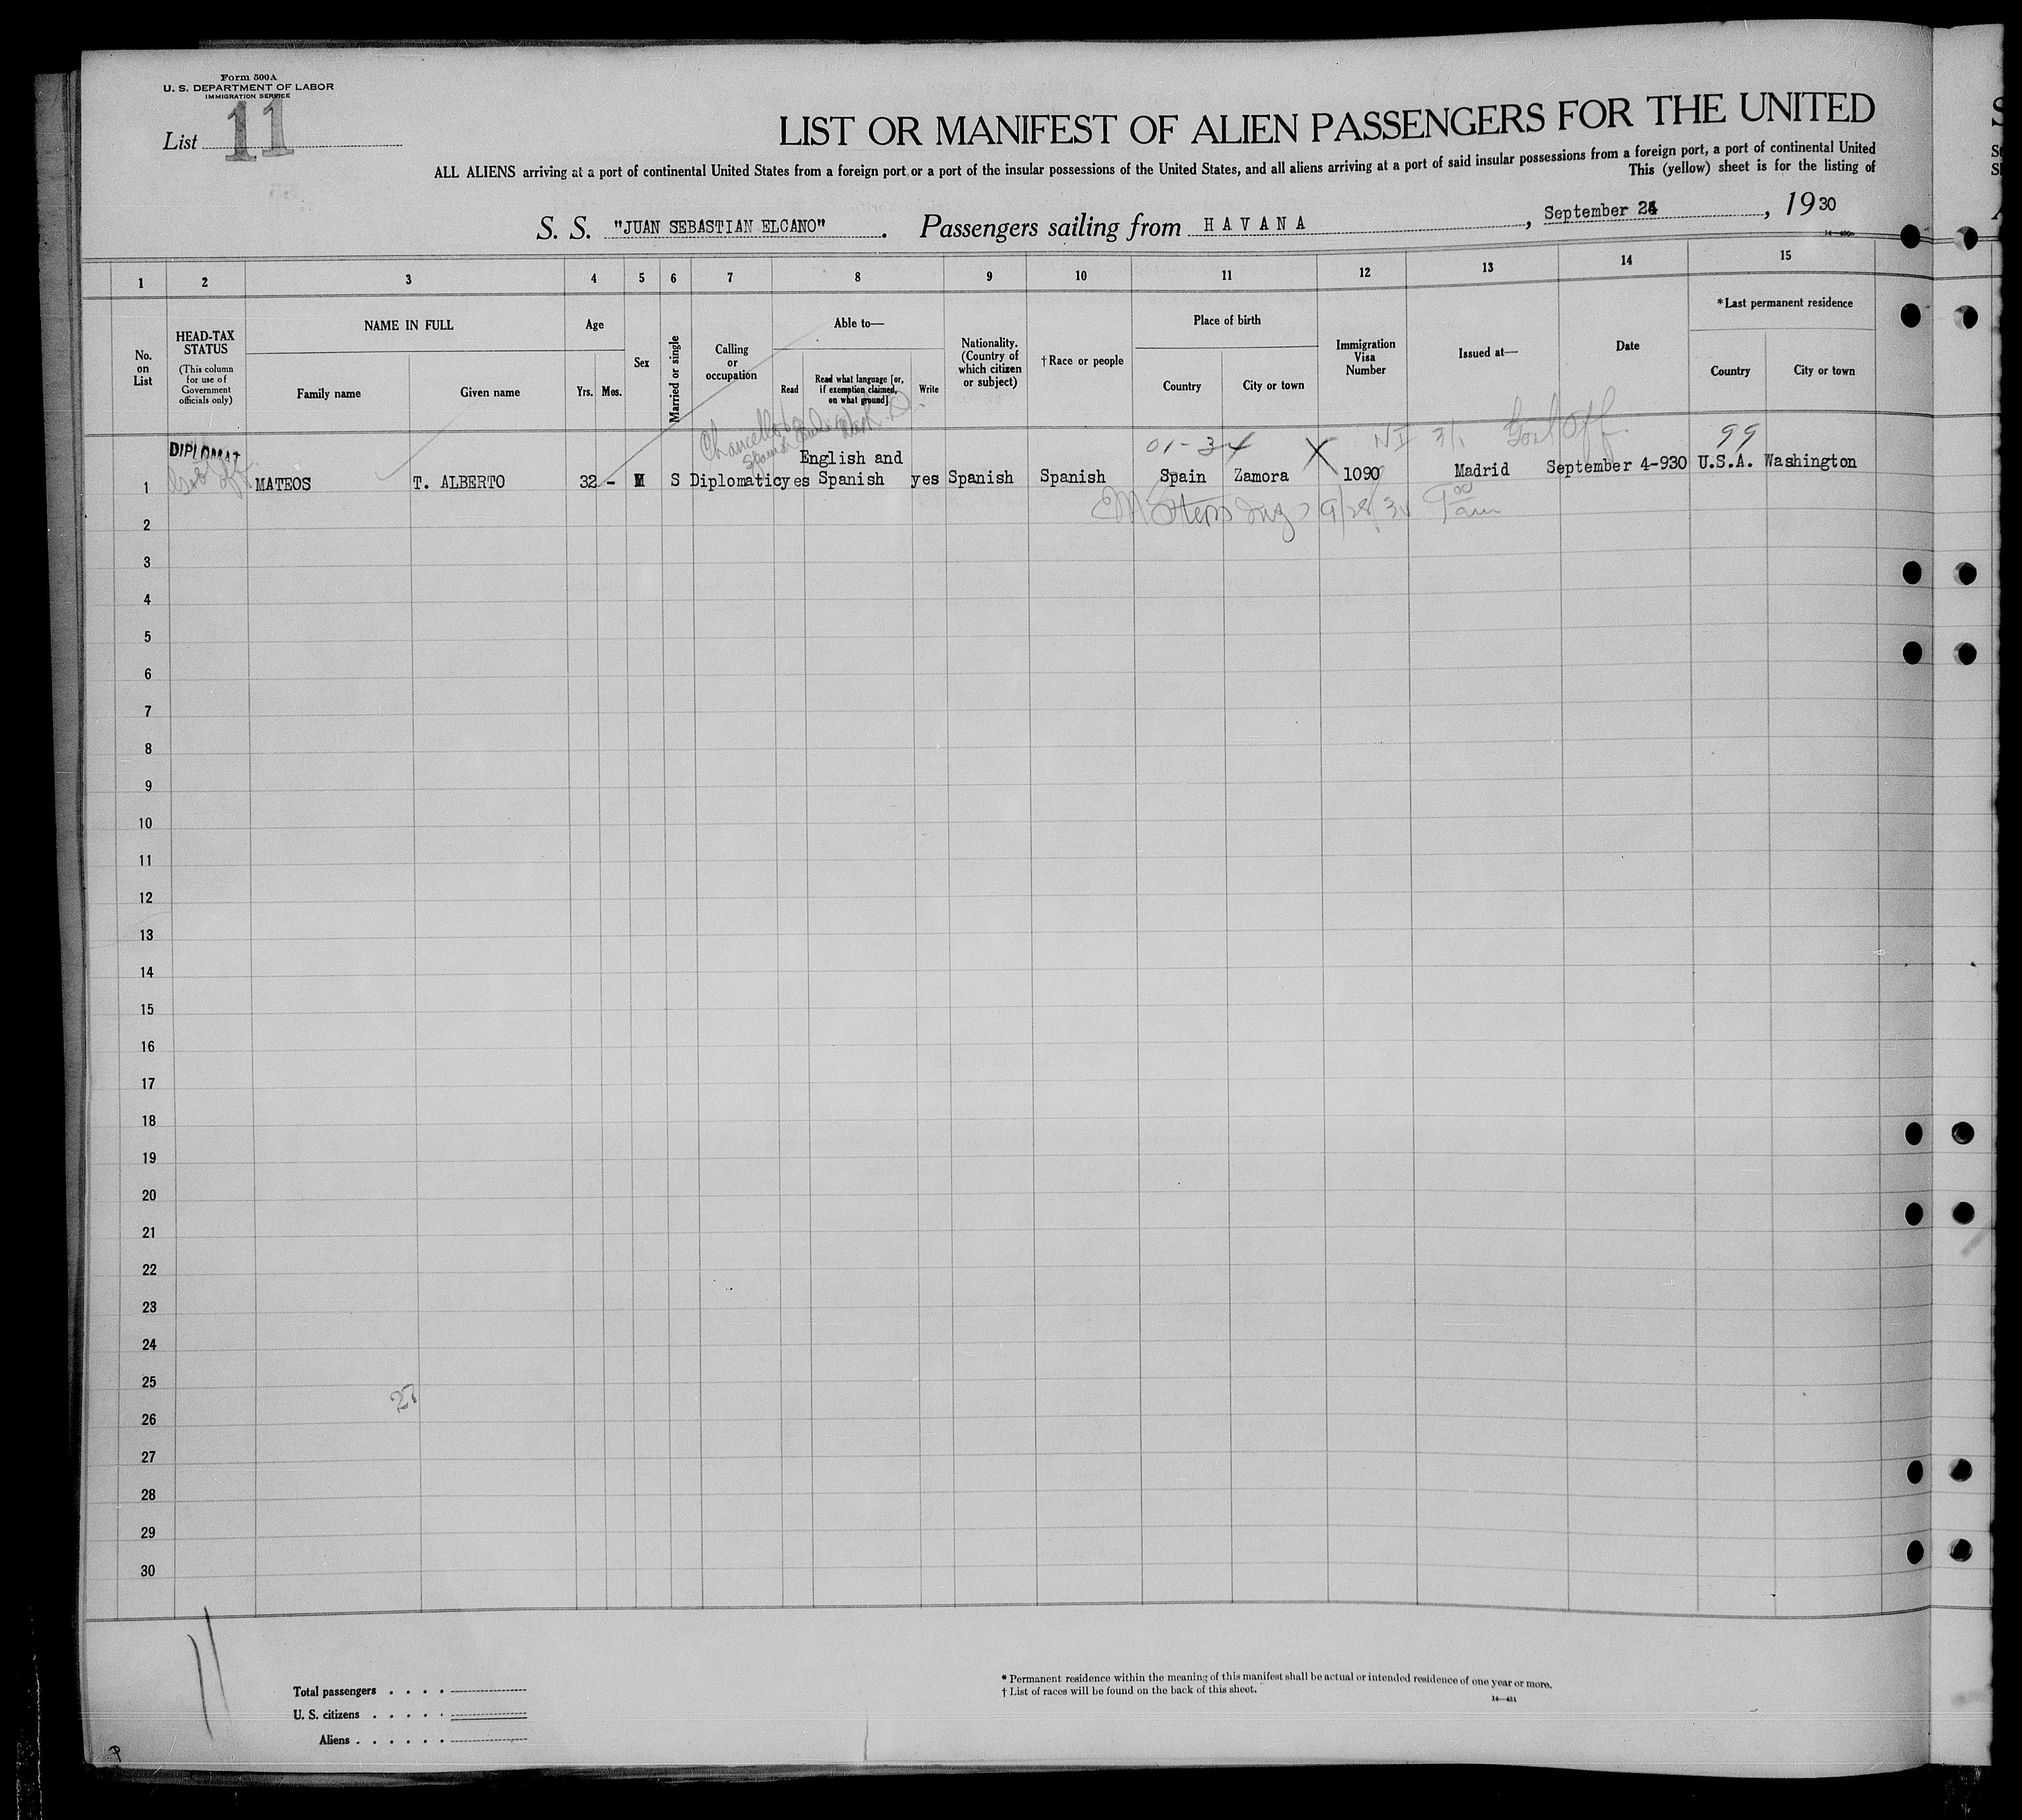 Form 500A
U. S. DEPARTMENT OF LABOR
IMMIGRATION SERVICE
List 11
LIST OR MANIFEST OF ALIEN PASSENGERS FOR THE UNITED
ALL ALIENS arriving at a port of continental United States from a foreign port or a port of the insular possessions of the United States, and all aliens arriving at a port of said insular possessions from a foreign port, a port of continental United
This (yellow) sheet is for the listing of
S. S. "JUAN SEBASTIAN ELCANO". Passengers sailing from HAVANA, September 24, 1930
14—430a
1 2 3 4 5 6 7 8 9 10 11 12 13 14 15
No. on List
HEAD-TAX STATUS
(This column for use of Government officials only)
NAME IN FULL
Family name Given name
Age
Yrs. Mos.
Sex
Married or single
Calling or occupation
Able to—
Read
Read what language [or, if exemption claimed, on what ground]
Write
Nationality. (Country of which citizen or subject)
†Race or people
Place of birth
Country City or town
Immigration Visa Number
Issued at—
Date
*Last permanent residence
Country City or town
DIPLOMAT
01-34 X NI 3/1 Govt Off. 99
1 MATEOS T. ALBERTO 32 - M S Diplomatic yes English and Spanish yes Spanish Spanish Spain Zamora 1090 Madrid September 4-930 U.S.A. Washington
9/28/30 9 00 am
2
3
4
5
6
7
8
9
10
11
12
13
14
15
16
17
18
19
20
21
22
23
24
25
27
26
27
28
29
30
11
Total passengers . . . .
U. S. citizens . . . . .
Aliens . . . . . .
* Permanent residence within the meaning of this manifest shall be actual or intended residence of one year or more.
† List of races will be found on the back of this sheet.
14—431